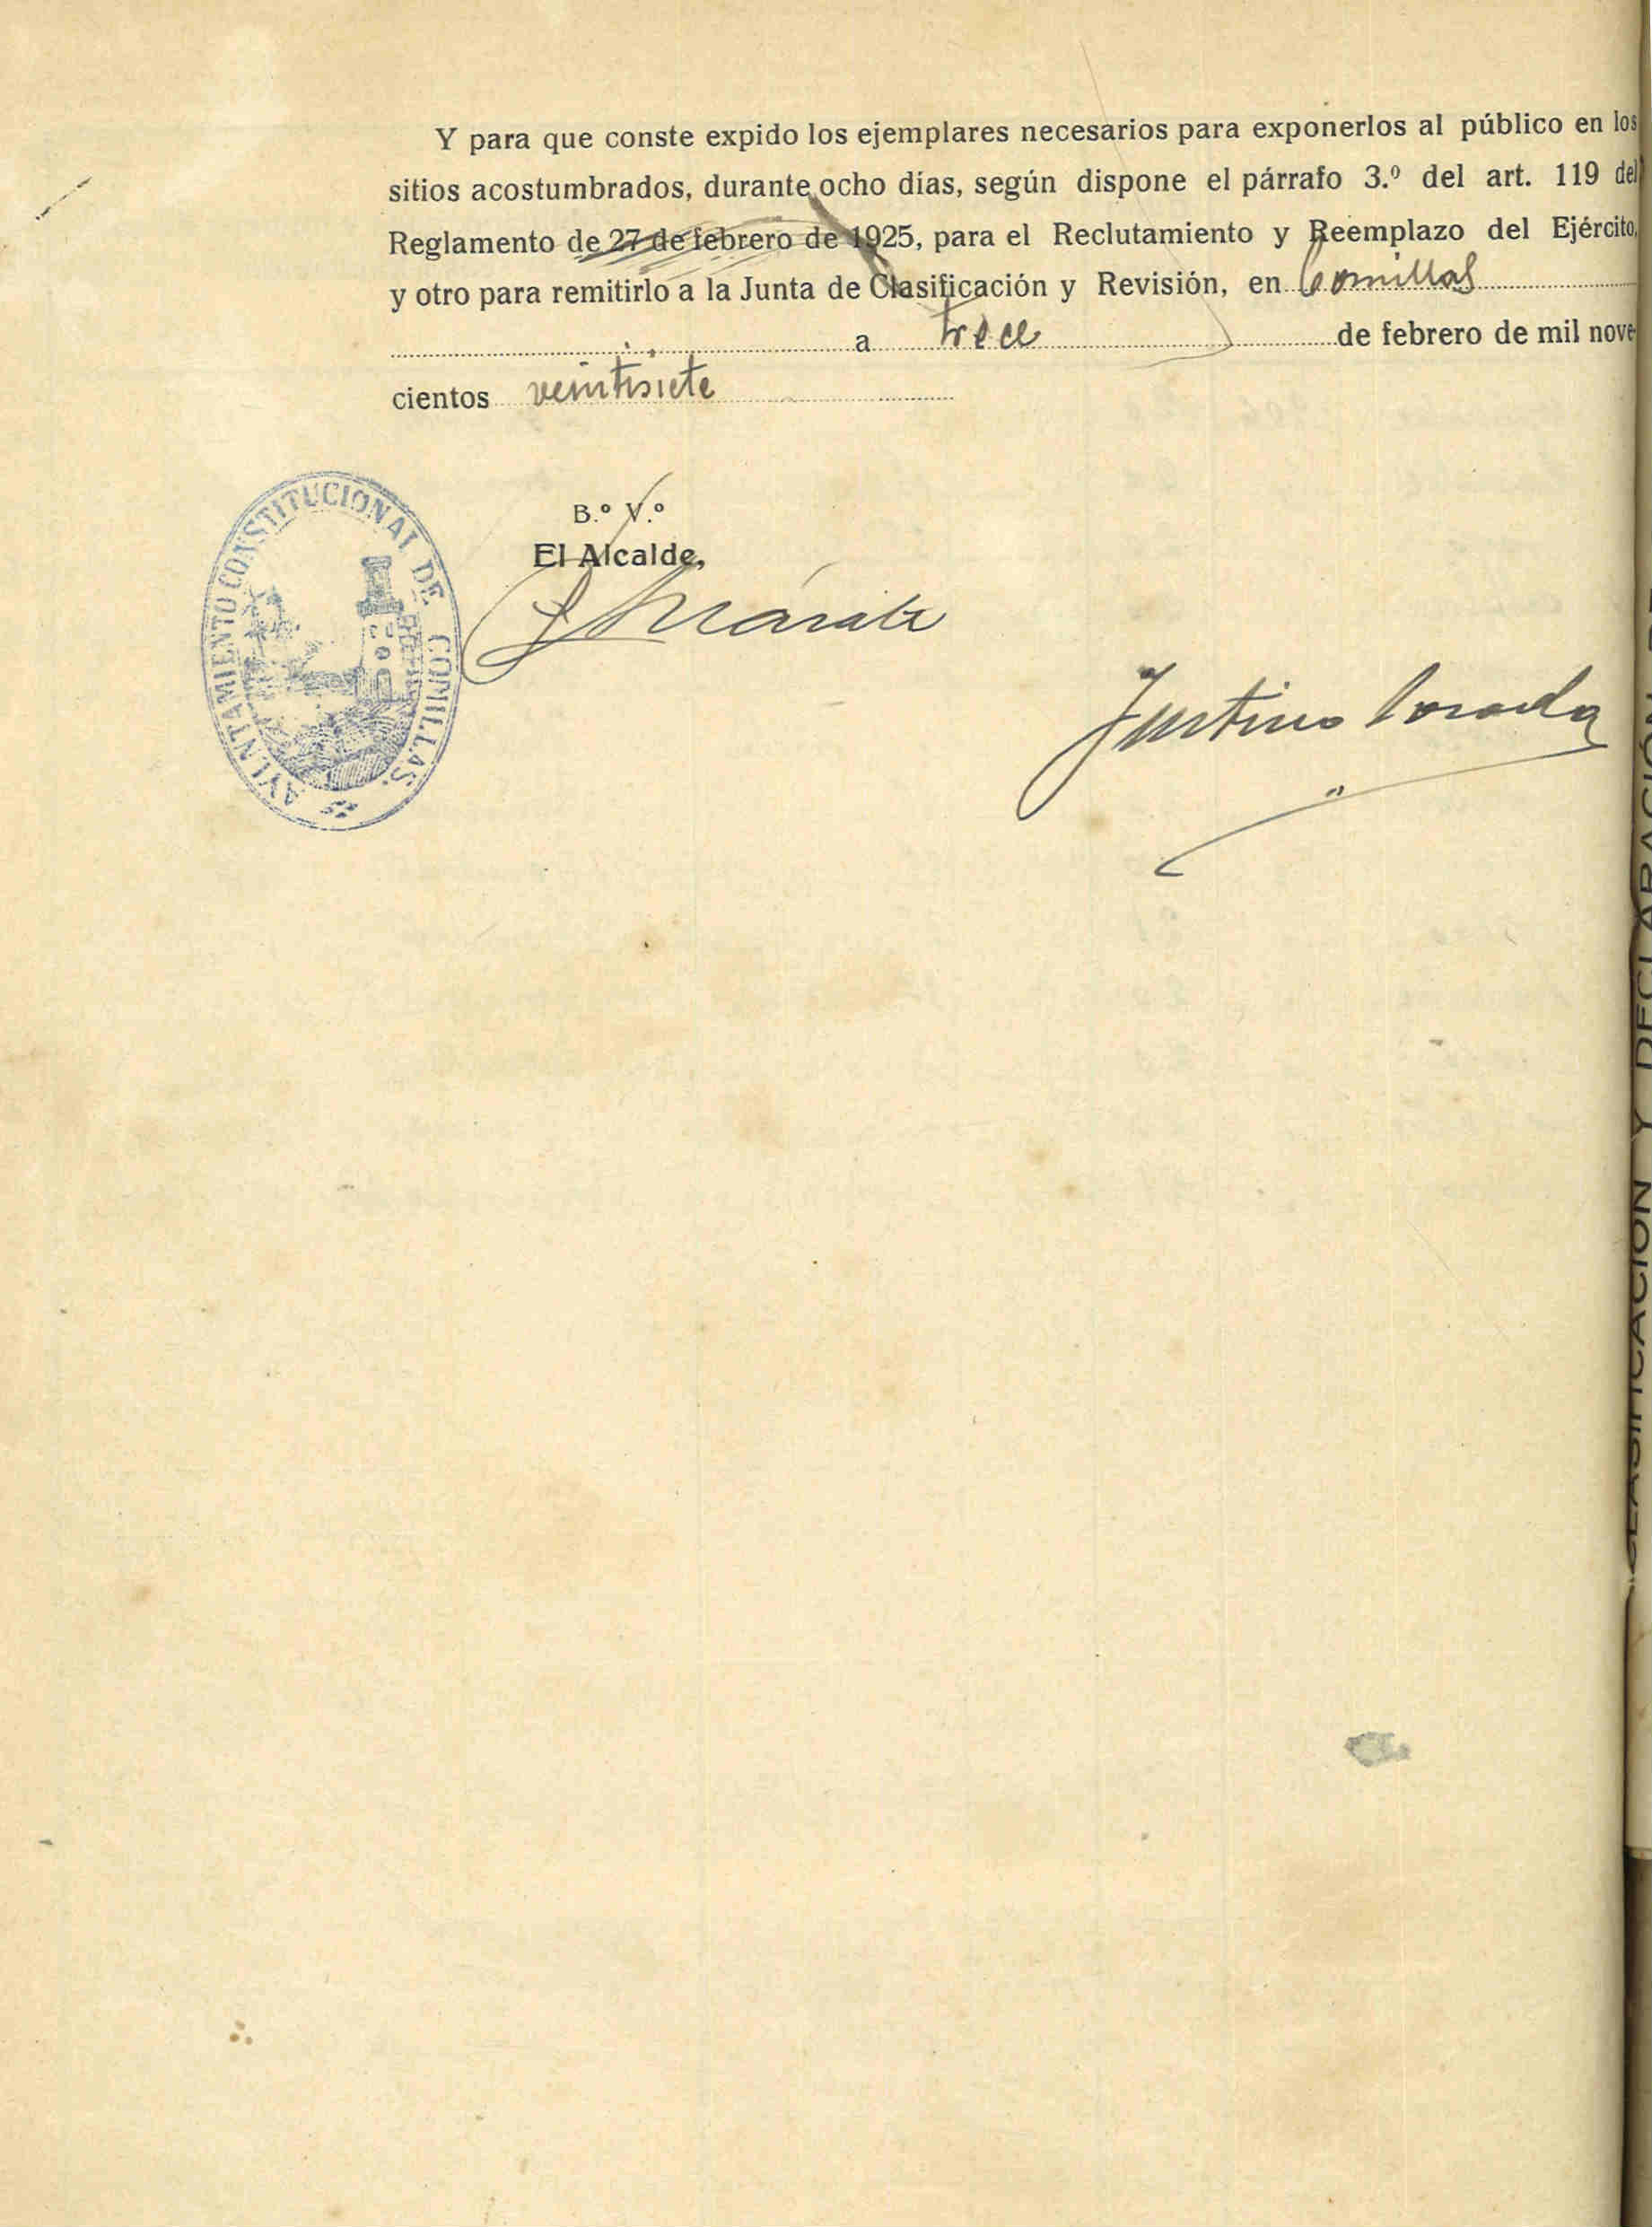 Y para que conste expido los ejemplares necesarios para exponerlos al público en los
sitios acostumbrados, durante ocho días, según dispone el párrafo 3.º del art. 119 del
Reglamento de 27 de febrero de 1925, para el Reclutamiento y Reemplazo del Ejército,
y otro para remitirlo a la Junta de Clasificación y Revisión, en Comillas
a trece de febrero de mil nove-
cientos veintisiete
B.º V.º
El Alcalde,
AYUNTAMIENTO CONSTITUCIONAL DE COMILLAS
Justino
CLASIFICACIÓN Y DECLARACIÓN DE